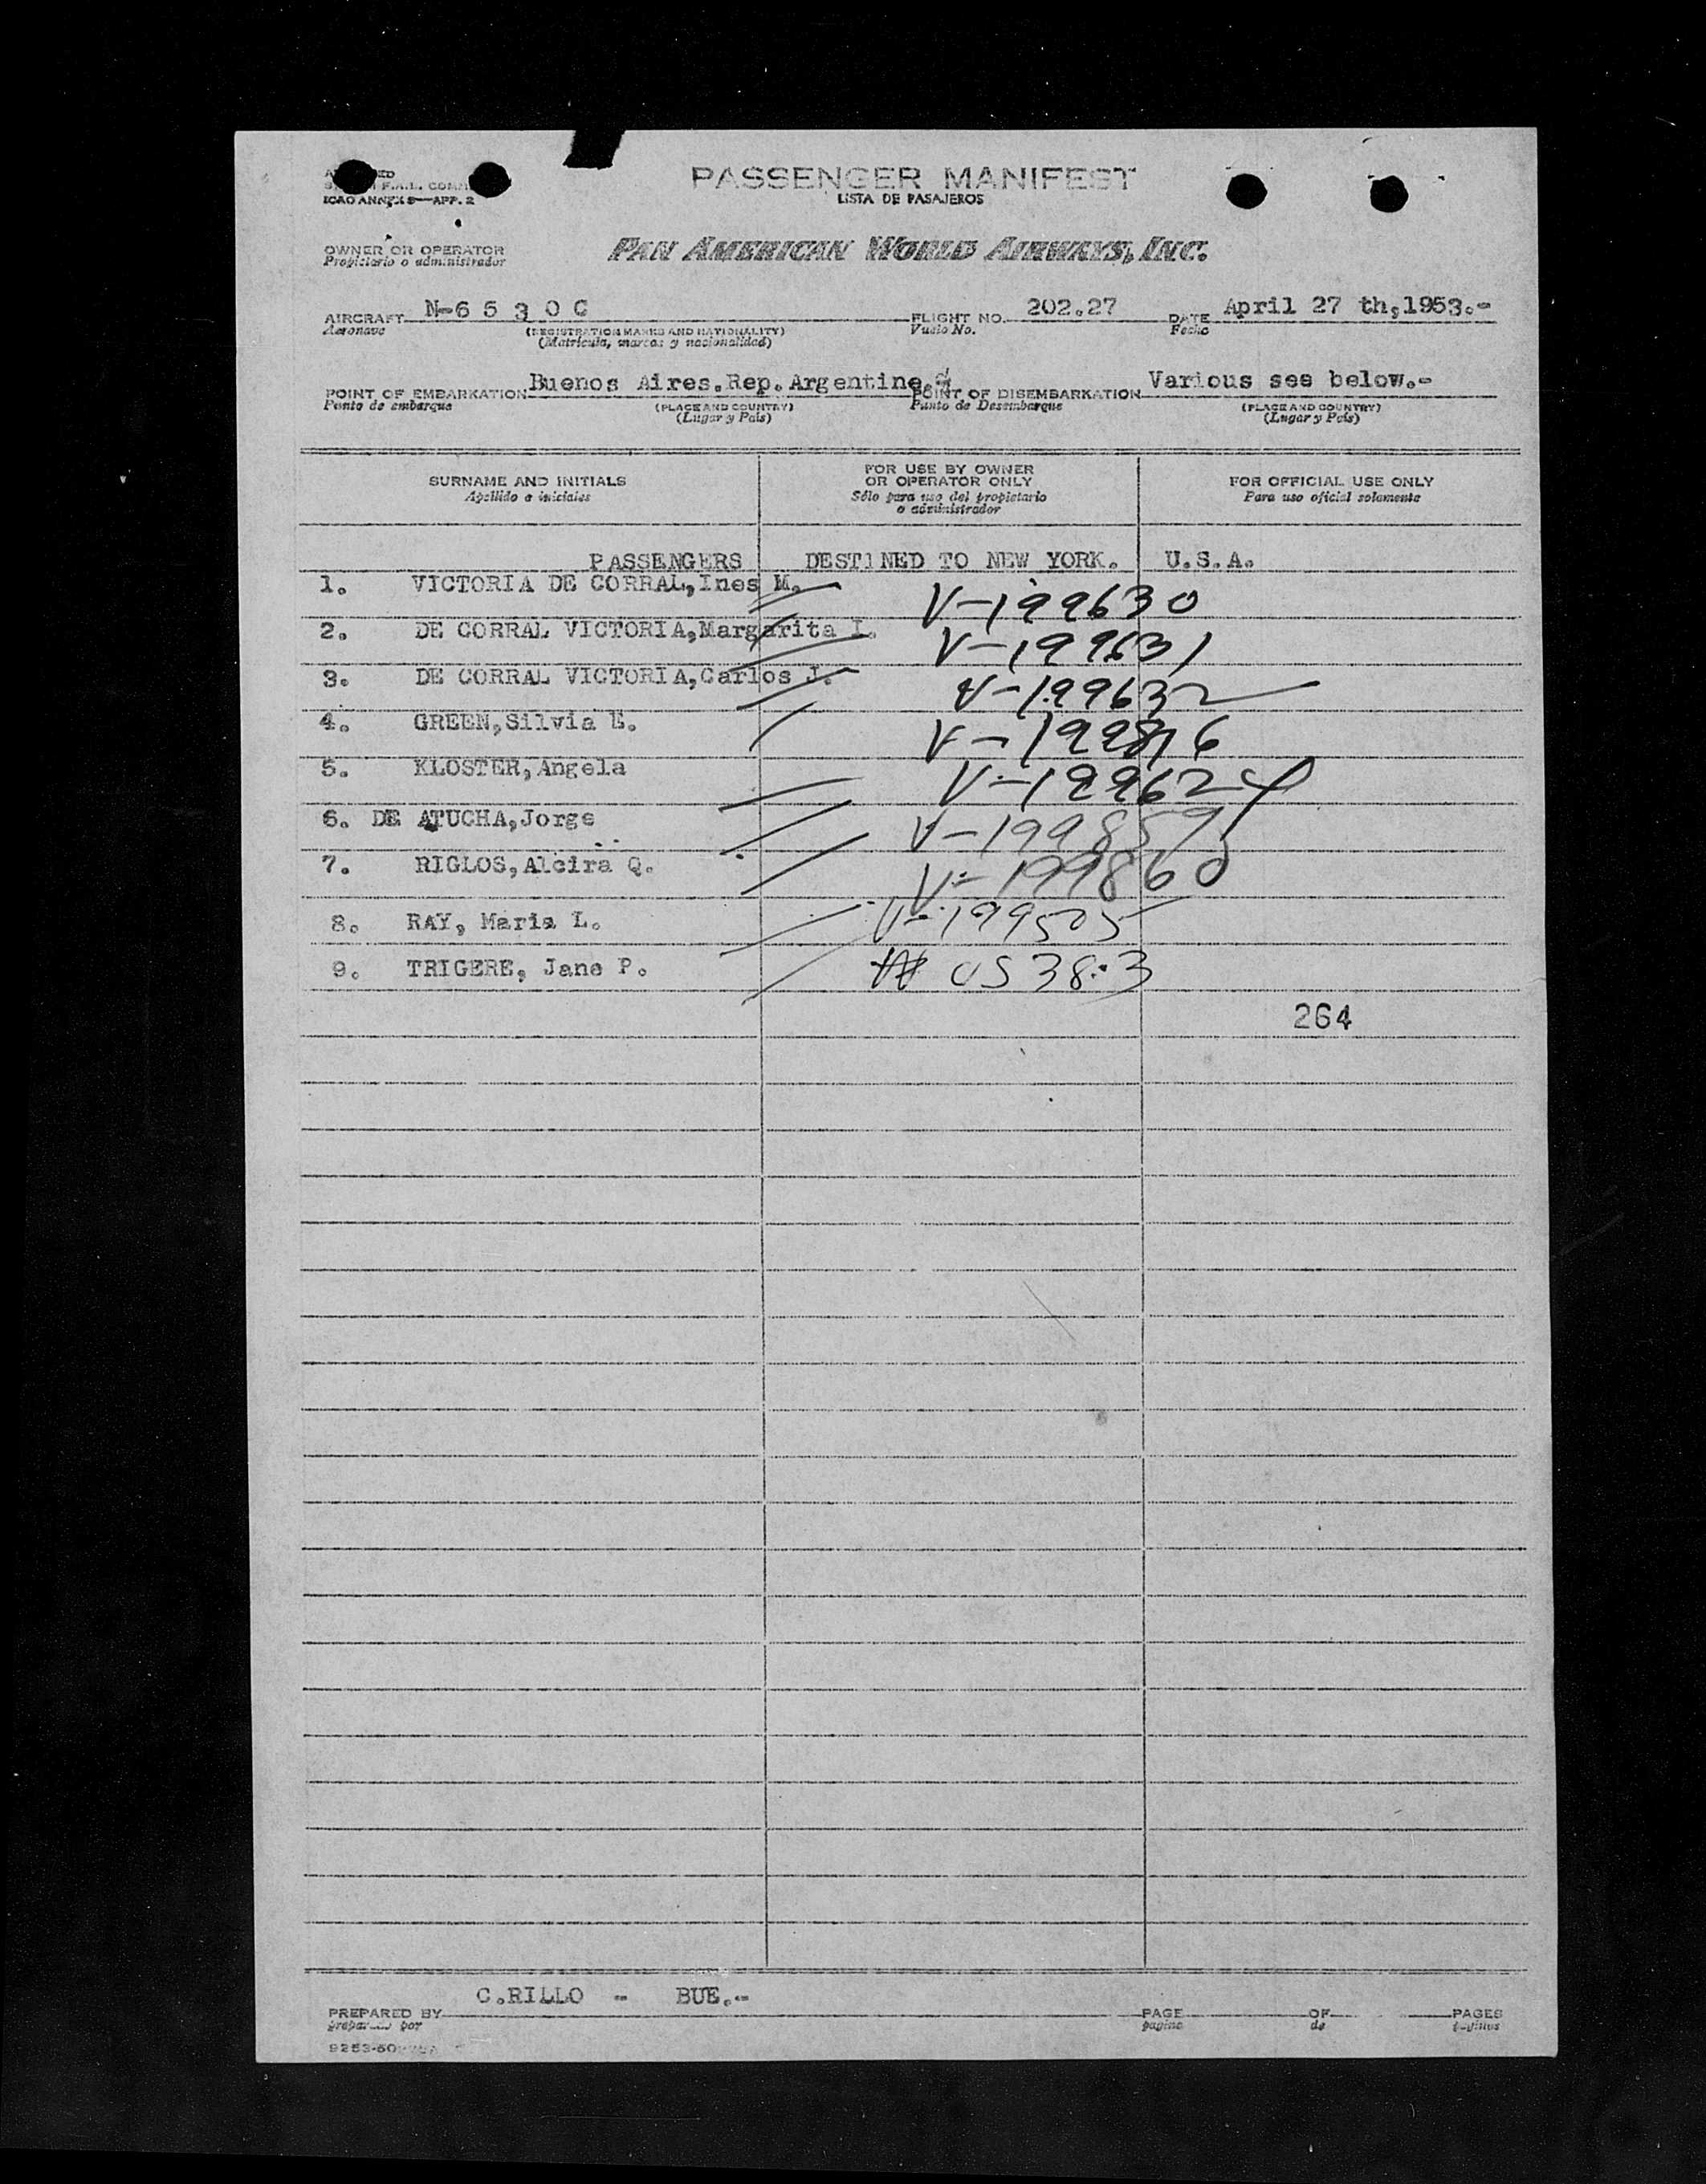 PASSENGER MANIFEST
LISTA DE PASAJEROS
ICAO ANNEX 9—APP. 2
OWNER OR OPERATOR
Propietario o administrador
PAN AMERICAN WORLD AIRWAYS, INC.
AIRCRAFT N-6 5 3 0 C FLIGHT NO. 202.27 DATE April 27 th,1953.-
Aeronave (REGISTRATION MARKS AND NATIONALITY) Vuelo No. Fecha
(Matrícula, marcas y nacionalidad)
POINT OF EMBARKATION Buenos Aires.Rep.Argentine. POINT OF DISEMBARKATION Various see below.-
Punto de embarque (PLACE AND COUNTRY) Punto de Desembarque (PLACE AND COUNTRY)
(Lugar y País) (Lugar y País)
SURNAME AND INITIALS FOR USE BY OWNER OR OPERATOR ONLY FOR OFFICIAL USE ONLY
Apellido e iniciales Sólo para uso del propietario o administrador Para uso oficial solamente
PASSENGERS DESTINED TO NEW YORK. U.S.A.
1. VICTORIA DE CORRAL,Ines M. V-199630
2. DE CORRAL VICTORIA,Margarita I. V-199631
3. DE CORRAL VICTORIA,Carlos J. V-199632
4. GREEN,Silvia E. V-199816
5. KLOSTER,Angela V-199624
6. DE ATUCHA,Jorge V-199859
7. RIGLOS,Alcira Q. V-199860
8. RAY, Maria L. V-199505
9. TRIGERE, Jane P. 05383
264
C.RILLO - BUE.-
PREPARED BY PAGE OF PAGES
preparado por pagina de paginas